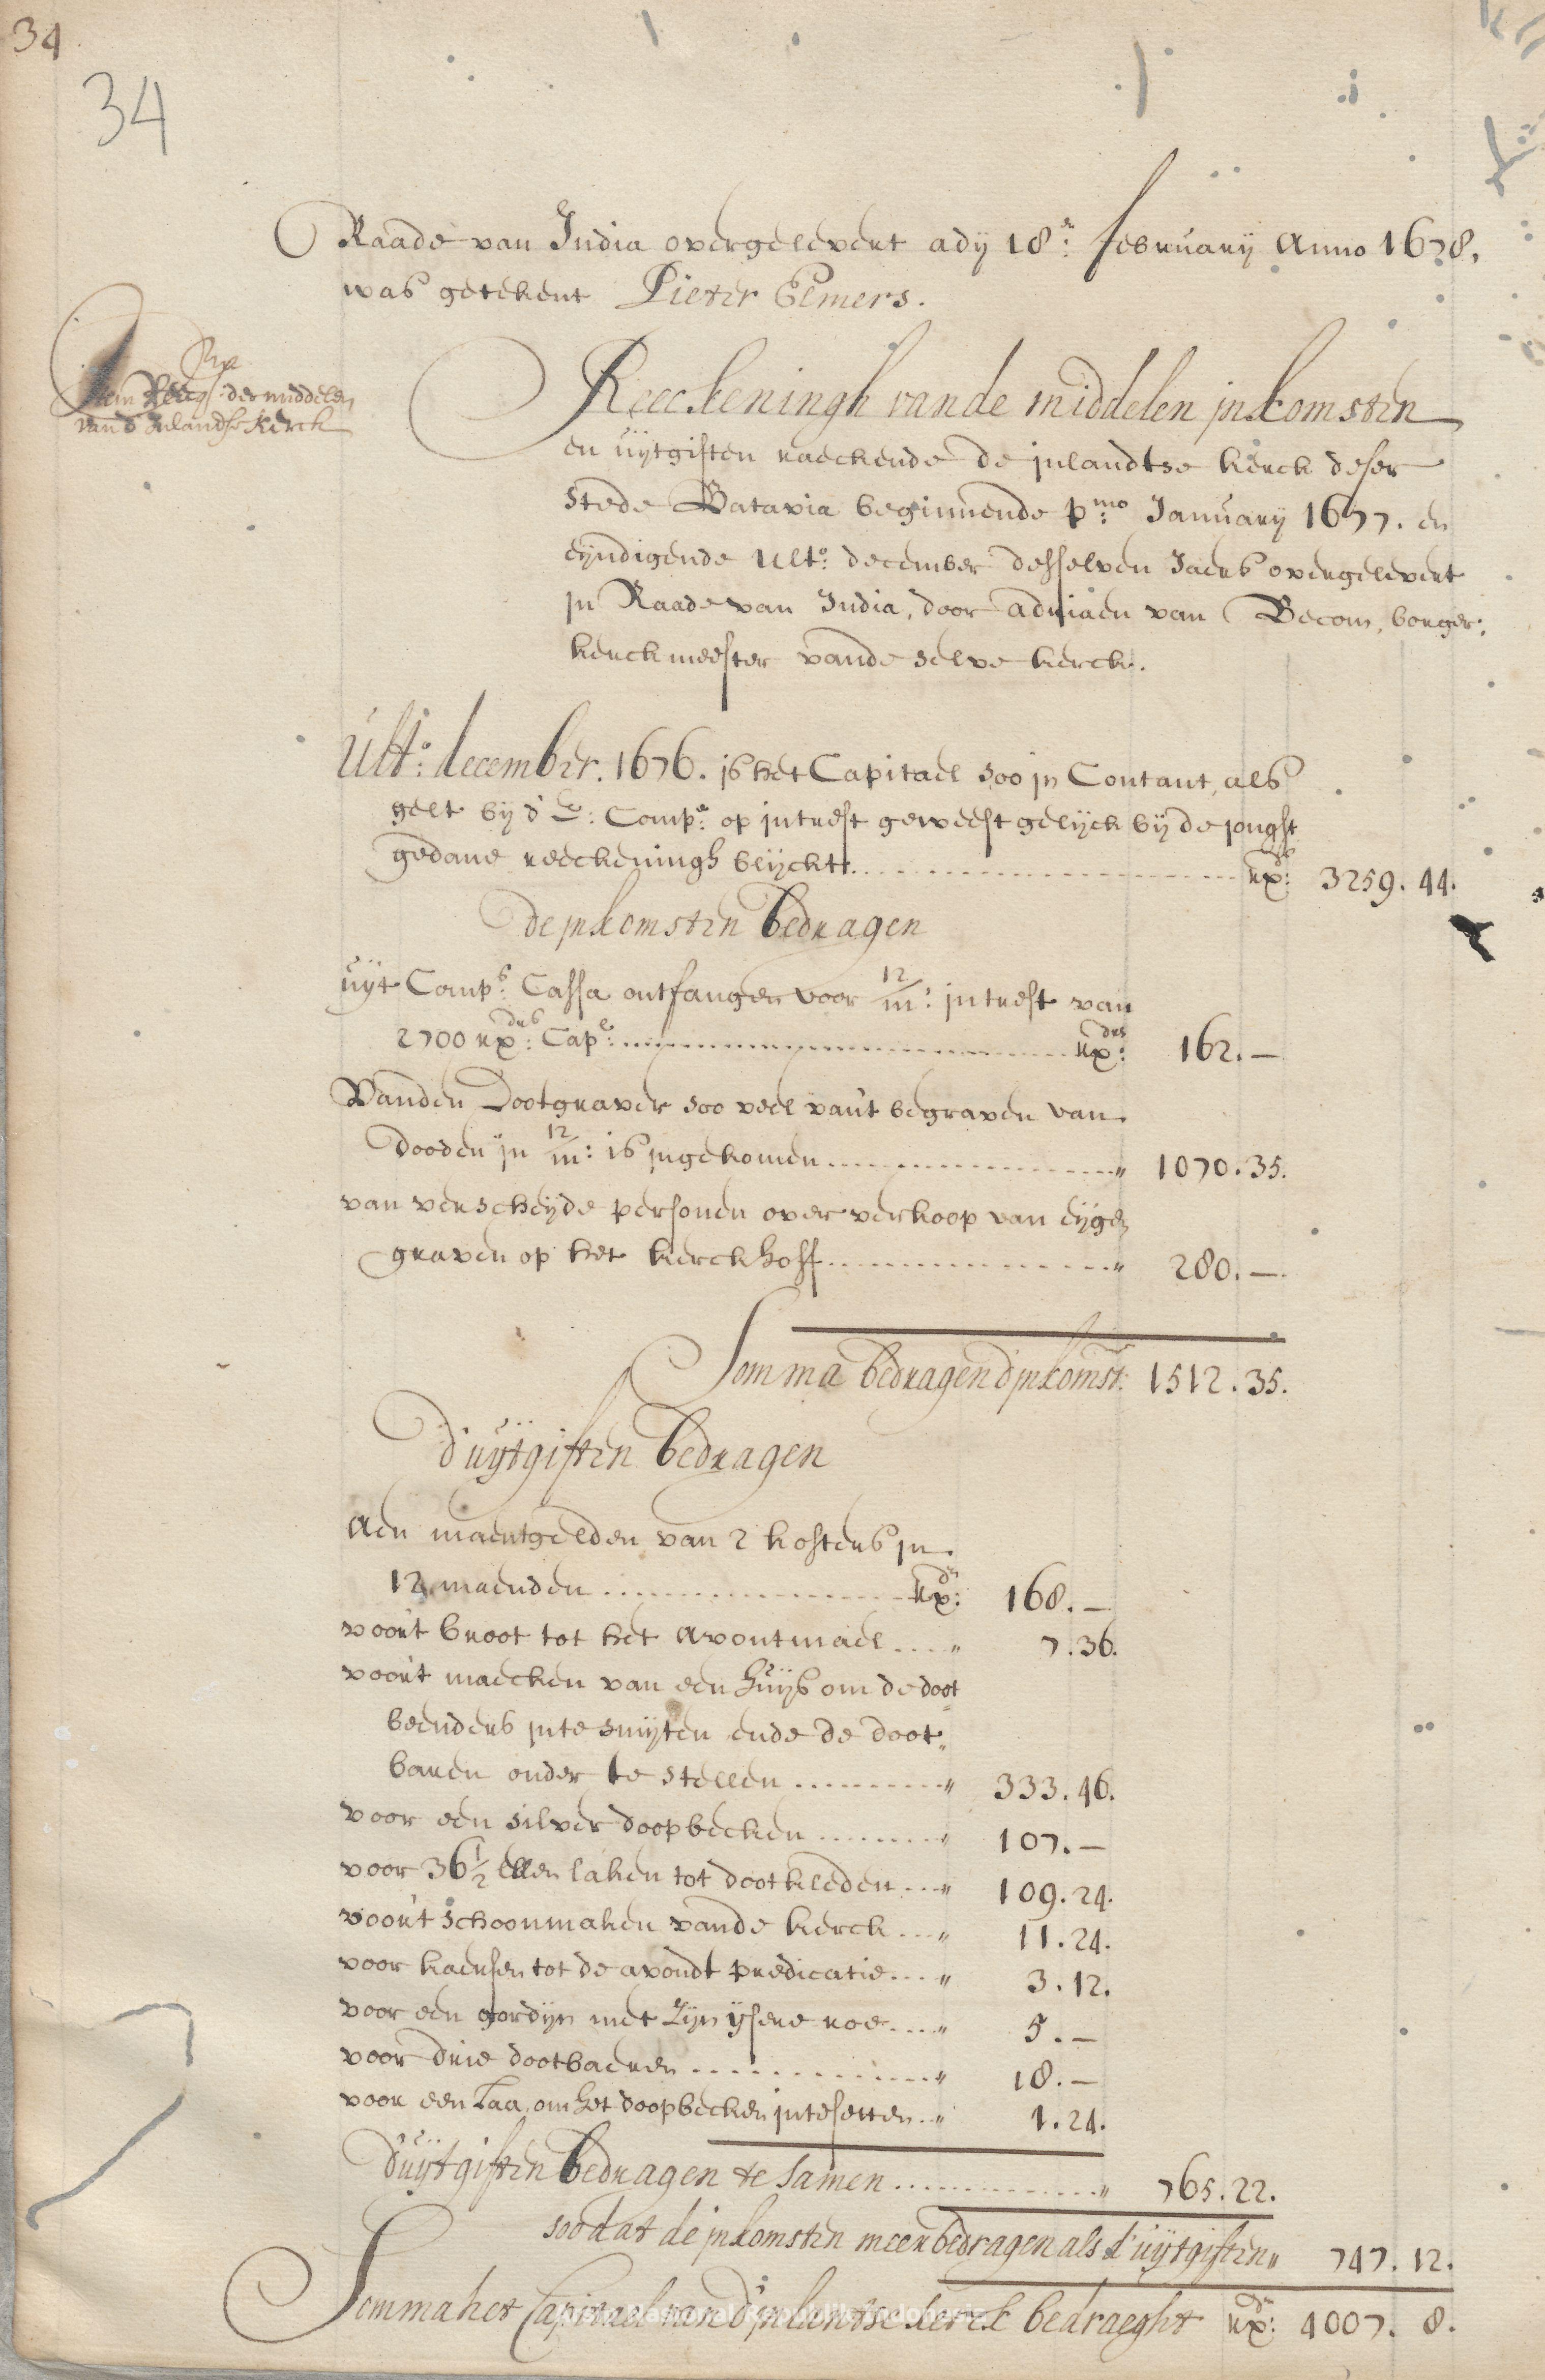 34
34
Raade van India overgelevert ady 18:e february Anno 1678.
was getekent Pieter Elmers.
Item Reecq: der middelen
van d'Inlandse Kerck
Reeckeningh vande middelen jnkomsten
en uijtgiften raeckende de jnlandtse kerck deser
stede Batavia beginnende p:mo January 1677. en
eyndigende ult:o december desselven Jaers overgelevert
jn Raade van India, door adriaen van Becom, borger:
kerckmeester vande selve kerck.
Ult:o december. 1676. is het Capitael soo jn Contant, als
gelt bij d'E: Comp:e op jntrest geweest gelijck bij de jongst
gedane reeckeningh blijckt rx:ds 3259. 44.
de jnkomsten bedragen
uijt Comp:s Cassa ontfangen voor 12/m: jntrest van
2700 rx:drs Cap:l rx:drs 162.—
Vanden Dootgraver soo veel van't begraven van
dooden jn 12/m: is jngekomen " 1070. 35.
van verscheyde persoonen over verkoop van eijgen
graven op het kerckhoff " 280.—
Somma bedragen d'jnkomst: 1512. 35.
d'uytgiften bedragen
Aen maentgelden van 2 kosters jn
12 maenden rx:drs 168.—
voor't broot tot het avontmael " 7. 36.
voor't maecken van een huijs om de doot
beenders jnte smijten ende de doot
baren onder te stellen " 333. 46.
voor een silver doopbecken " 107.—
voor 36 1/2 ellen laken tot dootkleden " 109. 24.
voor't schoonmaken vande kerck " 11. 24.
voor kaersen tot de avondt predicatie " 3. 12.
voor een gordijn met zijn ijsere roe " 5.—
voor drie dootbaeren " 18.—
voor een laa, om het doopbecken jntesetten " 1. 24.
d'uijtgiften bedragen te samen " 765. 22.
soodat de jnkomsten meer bedragen als d'uijtgiften " 747. 12.
Somma het Capitael van d'jnlantse kerck bedraeght rx:drs 4007. 8.
Arsip Nasional Republik Indonesia